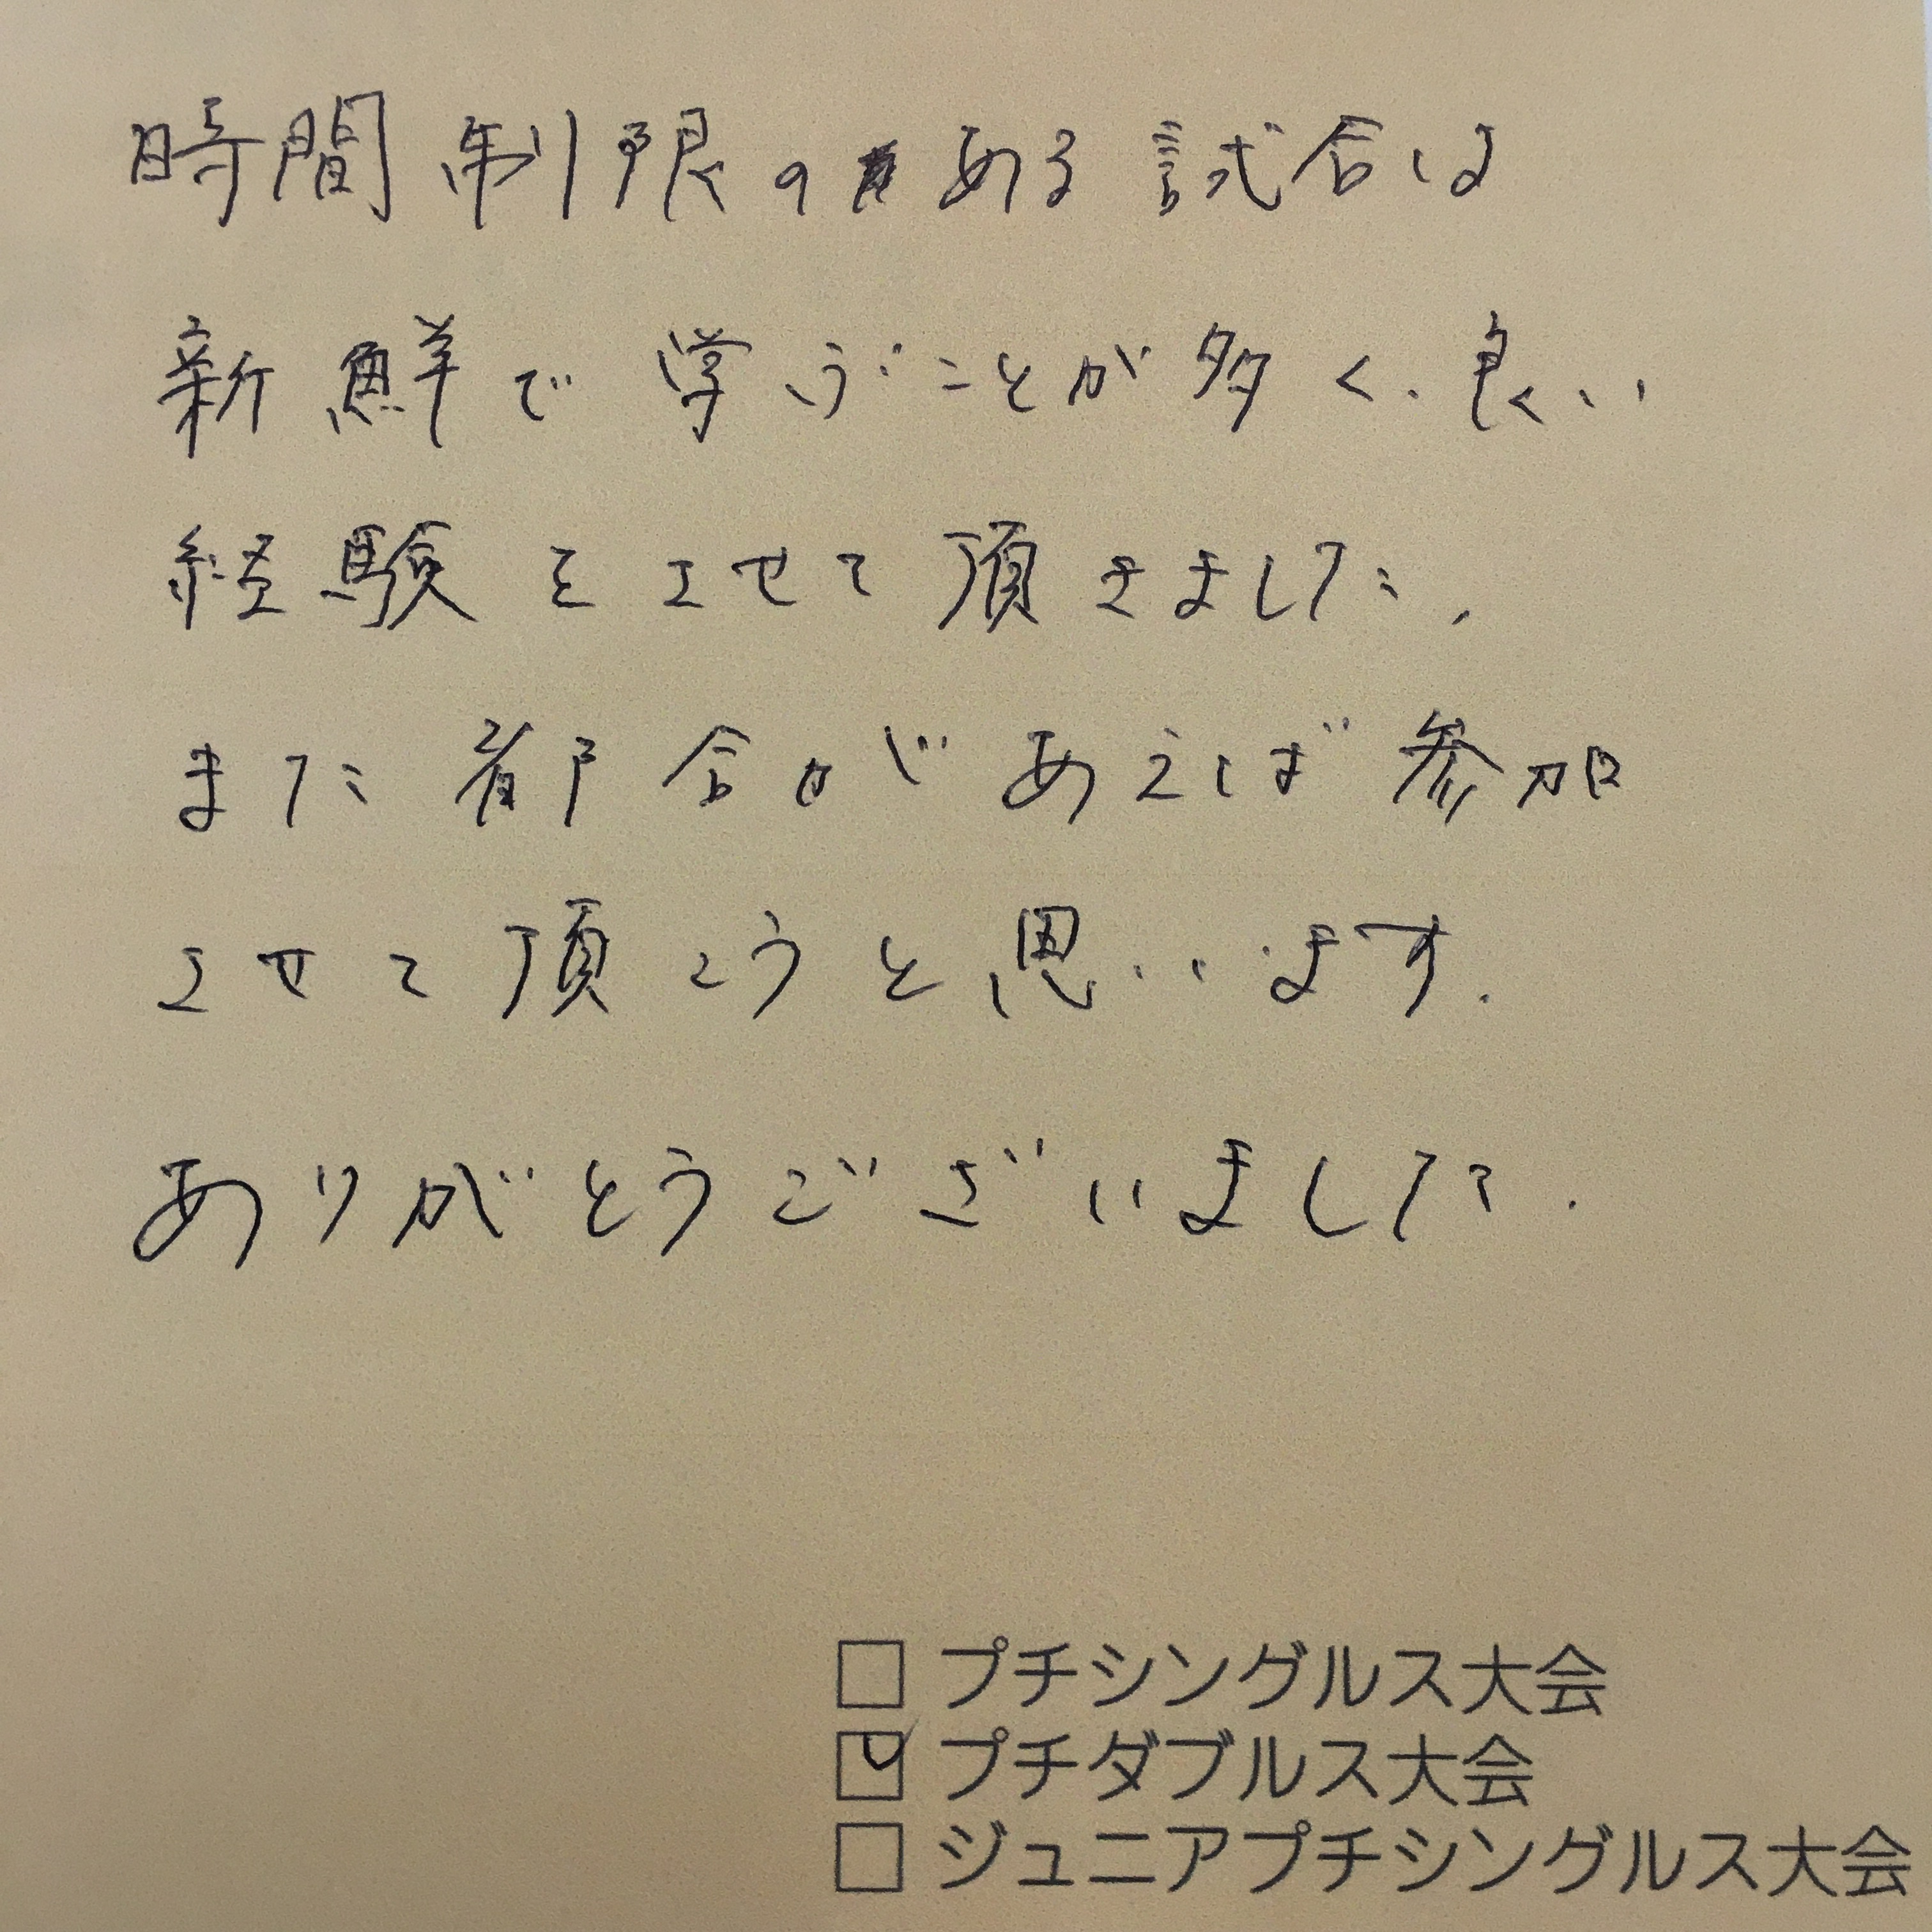 時間制限のある試合は
新鮮で学ぶことが多く、良い
経験をさせて頂きました。
また都合があえば参加
させて頂こうと思います。
ありがとうございました。
□ プチシングルス大会
☑ プチダブルス大会
□ ジュニアプチシングルス大会